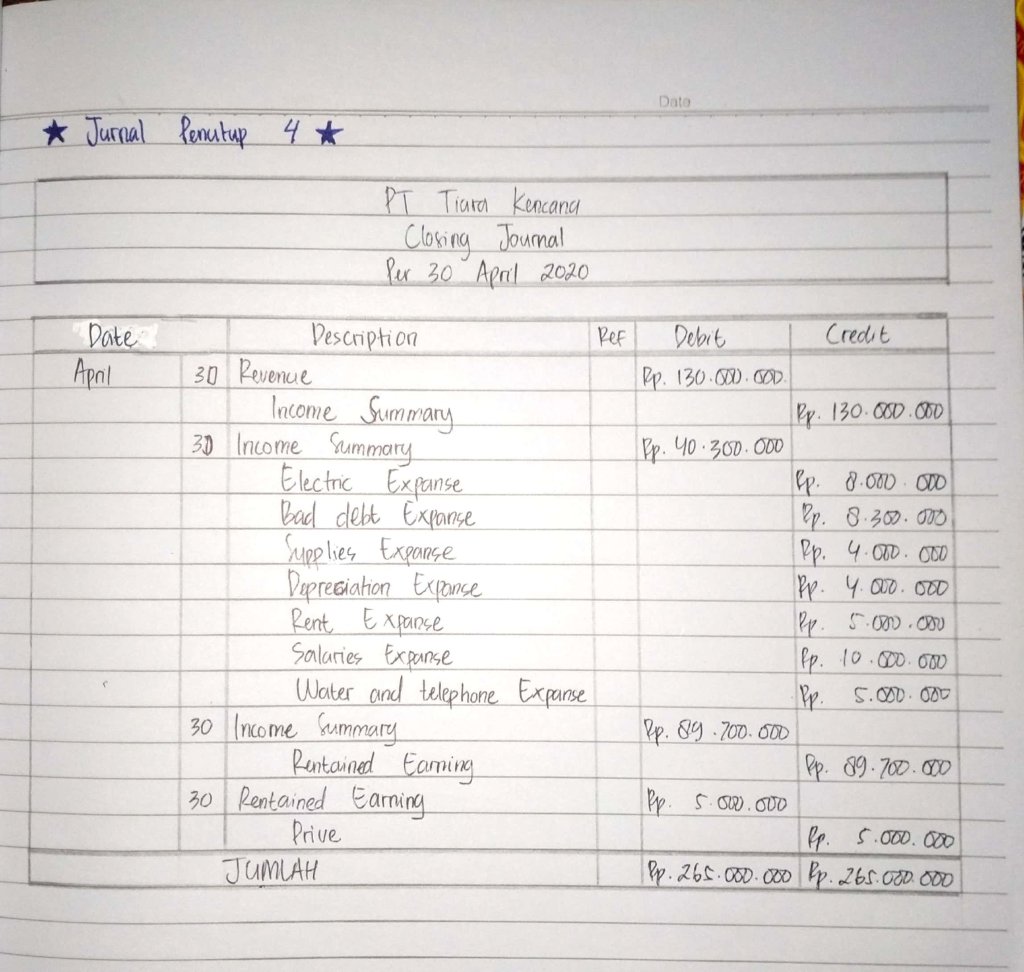 Date
★ Jurnal Penutup 4 ★
PT Tiara Kencana
Closing Journal
Per 30 April 2020
Date Description Ref Debit Credit
April 30 Revenue Rp. 130.000.000
Income Summary Rp. 130.000.000
30 Income Summary Rp. 40.300.000
Electric Expanse Rp. 8.000.000
Bad debt Expanse Rp. 8.300.000
Supplies Expanse Rp. 4.000.000
Depresiation Expanse Rp. 4.000.000
Rent Expanse Rp. 5.000.000
Salaries Expanse Rp. 10.000.000
Water and telephone Expanse Rp. 5.000.000
30 Income Summary Rp. 89.700.000
Rentained Earning Rp. 89.700.000
30 Rentained Earning Rp. 5.000.000
Prive Rp. 5.000.000
JUMLAH Rp. 265.000.000 Rp. 265.000.000